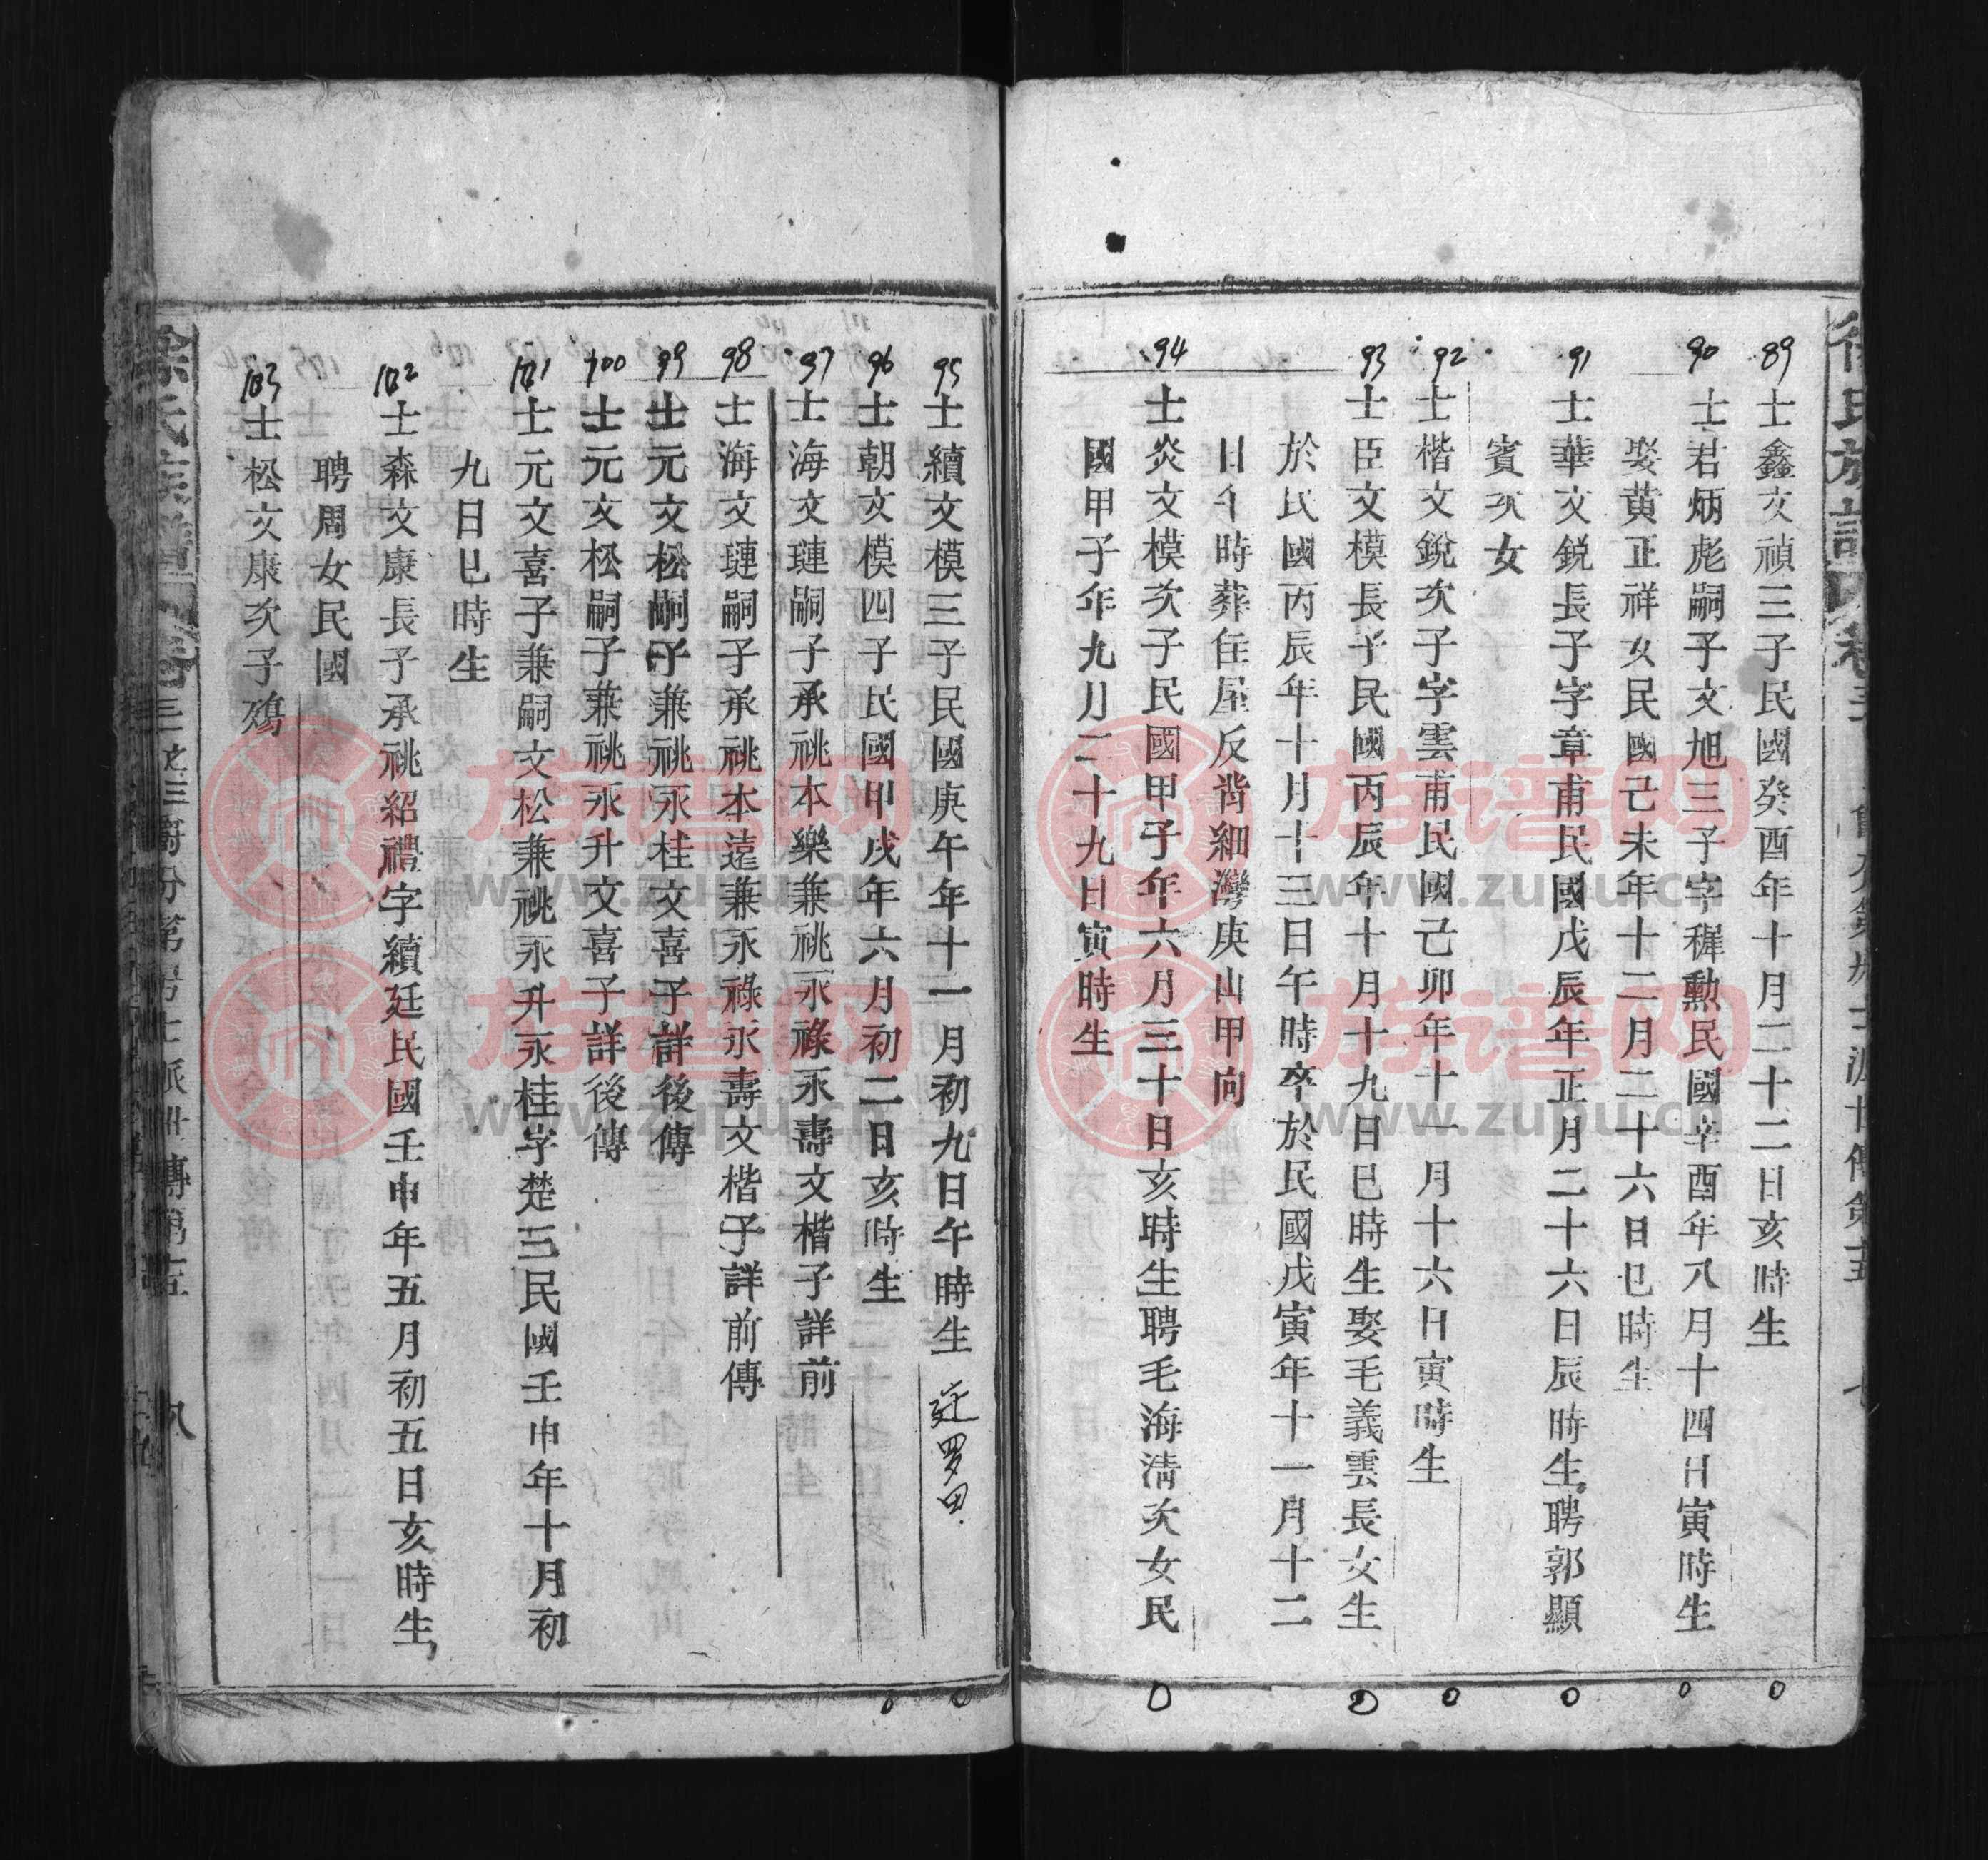 89
士鑫文禎三子民國癸酉年十月二十二日亥時生
90
士君炳彪嗣子文旭三子字穉勲民國辛酉年八月十四日寅時生
娶黄正祥女民國己未年十二月二十六日巳時生
91
士華文鋭長子字章甫民國戊辰年正月二十六日辰時生聘郭顯
賓次女
92
士楷文鋭次子字雲甫民國己卯年十一月十六日寅時生
93
士臣文模長子民國丙辰年十月十九日巳時生娶毛義雲長女生
於民國丙辰年十月十三日午時卒於民國戊寅年十一月十二
日午時葬住屋反背細灣庚山甲向
94
士炎文模次子民國甲子年六月三十日亥時生聘毛海清次女民
國甲子年九月二十九日寅時生
95
士續文模三子民國庚午年十一月初九日午時生
96
士朝文模四子民國甲戌年六月初二日亥時生
97
士海文璉嗣子承祧本樂兼祧永祿永壽文楷子詳前
98
士海文璉嗣子承祧本遠兼永祿永壽文楷子詳前傳
99
士元文松嗣子兼祧永桂文喜子詳後傳
100
士元文松嗣子兼祧永升文喜子詳後傳
101
士元文喜子兼嗣文松兼祧永升永桂字楚三民國壬申年十月初
九日巳時生
102
士森文康長子承祧紹禮字續廷民國壬申年五月初五日亥時生
聘周女民國
103
士松文康次子殤
徐氏族譜
卷三之三
傳第五
八
族谱网
www.zupu.cn
族谱网
www.zupu.cn
族谱网
www.zupu.cn
族谱网
www.zupu.cn